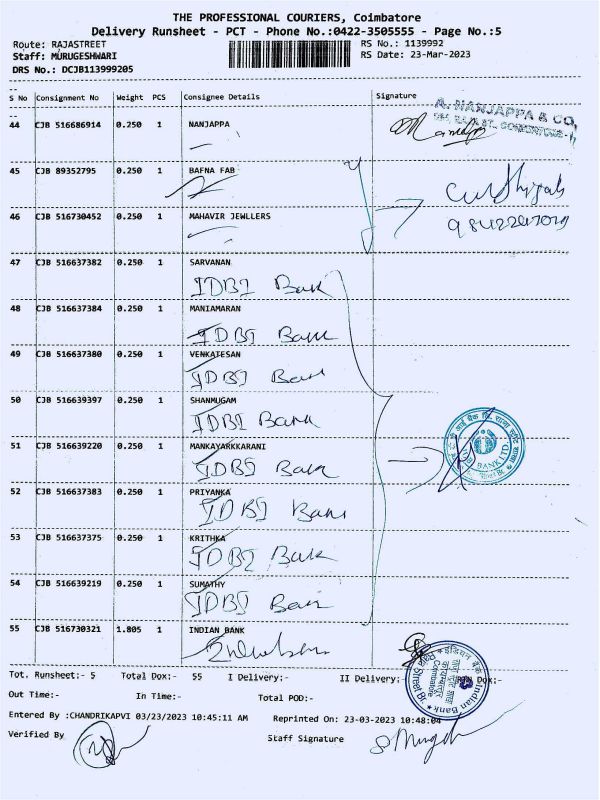 THE PROFESSIONAL COURIERS, Coimbatore
Delivery Runsheet - PCT - Phone No.:0422-3505555 - Page No.:5
Route: RAJASTREET RS No.: 1139992
Staff: MURUGESHWARI RS Date: 23-Mar-2023
DRS No.: DCJB113999205
S No Consignment No Weight PCS Consignee Details Signature
A. NANJAPPA & CO,
44 CJB 516686914 0.250 1 NANJAPPA
45 CJB 89352795 0.250 1 BAFNA FAB
46 CJB 516730452 0.250 1 MAHAVIR JEWLLERS
47 CJB 516637382 0.250 1 SARVANAN
IDBI Bank
48 CJB 516637384 0.250 1 MANIAMARAN
IDBI Bank
49 CJB 516637380 0.250 1 VENKATESAN
IDBI Bank
50 CJB 516639397 0.250 1 SHANMUGAM
IDBI Bank
51 CJB 516639220 0.250 1 MANKAYARKKARANI
IDBI Bank
BANK LTD.
52 CJB 516637383 0.250 1 PRIYANKA
IDBI Bank
53 CJB 516637375 0.250 1 KRITHKA
IDBI Bank
54 CJB 516639219 0.250 1 SUMATHY
IDBI Bank
55 CJB 516730321 1.805 1 INDIAN BANK
Tot. Runsheet:- 5 Total Dox:- 55 I Delivery:- II Delivery:- Dox:-
इंडियन बैंक Indian Bank
Raja Street Br.
Coimbatore
Out Time:- In Time:- Total POD:-
Entered By :CHANDRIKAPVI 03/23/2023 10:45:11 AM Reprinted On: 23-03-2023 10:48:04
Verified By Staff Signature